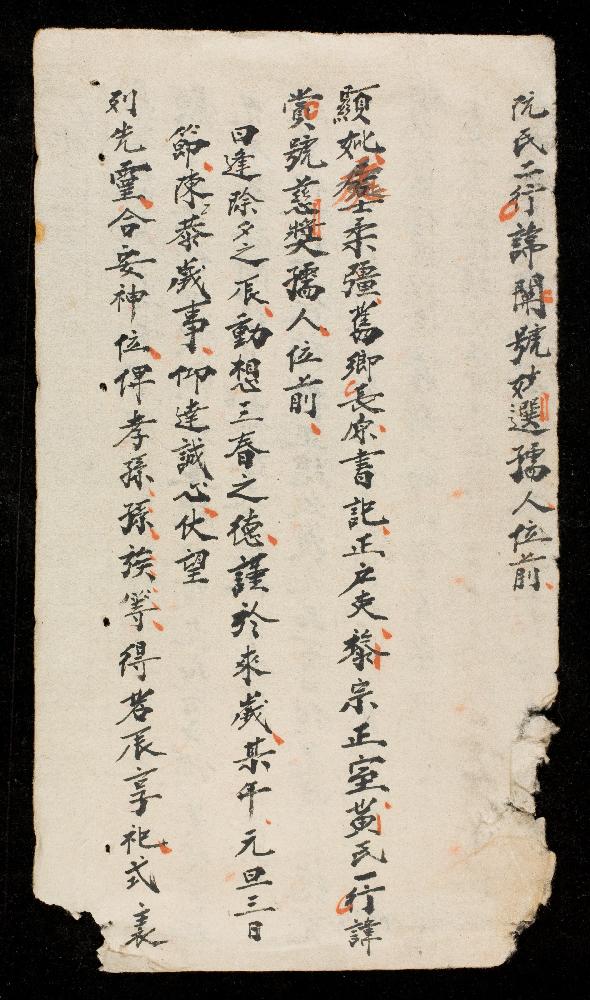 阮氏二行諱蘭號妙選孺人位前
顯妣居士柔彊舊鄉長原書記正户吏黎宗正室黃氏一行諱
賞號慈獎孺人位前
日逢除夕之辰動想三春之德謹於來歲某年元旦三日
節陳菲歲事仰達誠心伏望
列先靈合安神位俾孝孫孫族等得若辰享祀式表